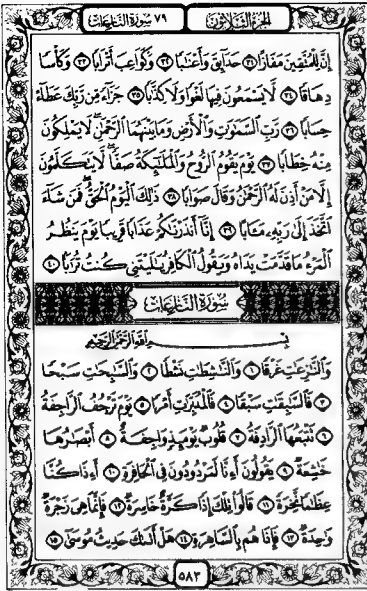 الجزء الثلاثون ٧٩ سورة النازعات
إِنَّ لِلْمُتَّقِينَ مَفَازًا ٣١ حَدَآئِقَ وَأَعْنَٰبًا ٣٢ وَكَوَاعِبَ أَتْرَابًا ٣٣ وَكَأْسًا
دِهَاقًا ٣٤ لَّا يَسْمَعُونَ فِيهَا لَغْوًا وَلَا كِذَّٰبًا ٣٥ جَزَآءً مِّن رَّبِّكَ عَطَآءً
حِسَابًا ٣٦ رَّبِّ ٱلسَّمَٰوَٰتِ وَٱلْأَرْضِ وَمَا بَيْنَهُمَا ٱلرَّحْمَٰنِ لَا يَمْلِكُونَ
مِنْهُ خِطَابًا ٣٧ يَوْمَ يَقُومُ ٱلرُّوحُ وَٱلْمَلَٰٓئِكَةُ صَفًّا لَّا يَتَكَلَّمُونَ
إِلَّا مَنْ أَذِنَ لَهُ ٱلرَّحْمَٰنُ وَقَالَ صَوَابًا ٣٨ ذَٰلِكَ ٱلْيَوْمُ ٱلْحَقُّ فَمَن شَآءَ
ٱتَّخَذَ إِلَىٰ رَبِّهِۦ مَـَٔابًا ٣٩ إِنَّآ أَنذَرْنَٰكُمْ عَذَابًا قَرِيبًا يَوْمَ يَنظُرُ
ٱلْمَرْءُ مَا قَدَّمَتْ يَدَاهُ وَيَقُولُ ٱلْكَافِرُ يَٰلَيْتَنِي كُنتُ تُرَٰبًۢا ٤٠
سُورَةُ النَّازِعَاتِ
بِسْمِ ٱللَّهِ ٱلرَّحْمَٰنِ ٱلرَّحِيمِ
وَٱلنَّٰزِعَٰتِ غَرْقًا ١ وَٱلنَّٰشِطَٰتِ نَشْطًا ٢ وَٱلسَّٰبِحَٰتِ سَبْحًا
٣ فَٱلسَّٰبِقَٰتِ سَبْقًا ٤ فَٱلْمُدَبِّرَٰتِ أَمْرًا ٥ يَوْمَ تَرْجُفُ ٱلرَّاجِفَةُ
٦ تَتْبَعُهَا ٱلرَّادِفَةُ ٧ قُلُوبٌ يَوْمَئِذٍ وَاجِفَةٌ ٨ أَبْصَٰرُهَا
خَٰشِعَةٌ ٩ يَقُولُونَ أَءِنَّا لَمَرْدُودُونَ فِي ٱلْحَافِرَةِ ١٠ أَءِذَا كُنَّا
عِظَٰمًا نَّخِرَةً ١١ قَالُوا۟ تِلْكَ إِذًا كَرَّةٌ خَاسِرَةٌ ١٢ فَإِنَّمَا هِيَ زَجْرَةٌ
وَٰحِدَةٌ ١٣ فَإِذَا هُم بِٱلسَّاهِرَةِ ١٤ هَلْ أَتَىٰكَ حَدِيثُ مُوسَىٰٓ ١٥
٥٨٣